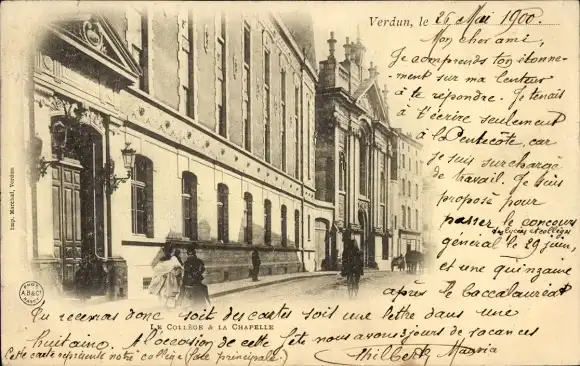 Verdun, le 26 Mai 1900.
Mon cher ami,
Je comprends ton étonne-
ment sur ma lenteur
à te répondre. Je tenais
à t'écrire seulement
à la Pentecôte, car
je suis surchargé
de travail. Je suis
proposé pour
passer le concours
des lycées et collèges
général le 29 juin,
et une quinzaine
après le baccalauréat
Imp. Marchal, Verdun
PHOT
A.B & Cº
NANCY
LE COLLÈGE & LA CHAPELLE
Tu recevras donc soit des cartes soit une lettre dans une
huitaine. A l'occasion de cette fête nous avons 3 jours de vacances
Cette carte représente notre collège (face principale.)
Philbert